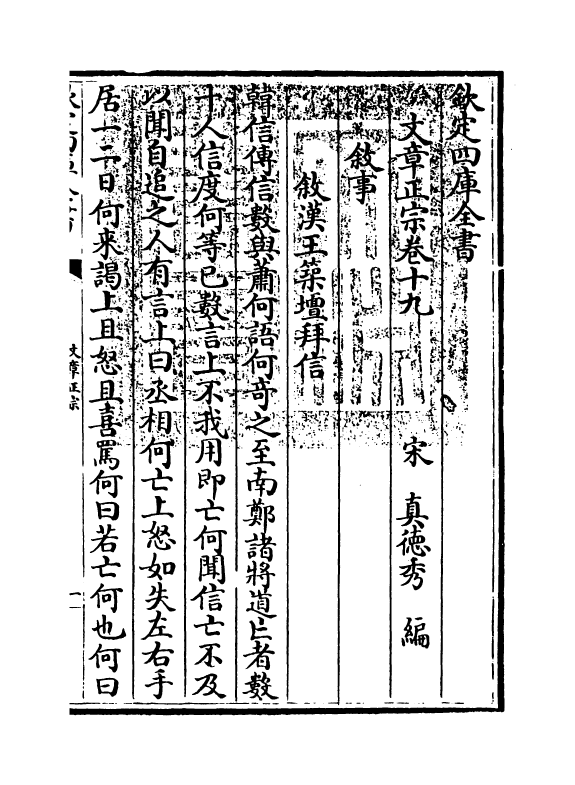 欽定四庫全書
文章正宗卷十九　宋　真徳秀　編
敘事
敘漢王築壇拜信
韓信傳信數與蕭何語何奇之至南鄭諸將道亡者數
十人信度何等已數言上不我用即亡何聞信亡不及
以聞自追之人有言上曰丞相何亡上怒如失左右手
居一二日何來謁上且怒且喜罵何曰若亡何也何曰
文章正宗